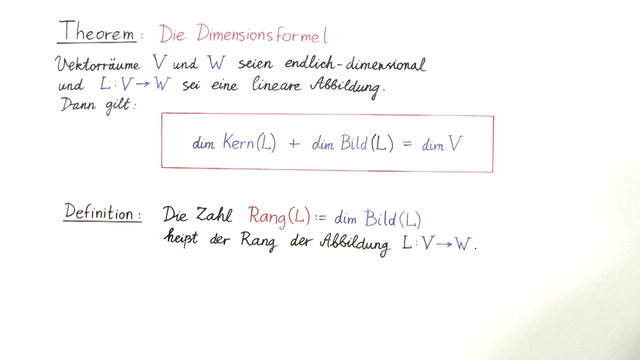 Theorem: Die Dimensionsformel
Vektorräume V und W seien endlich-dimensional
und L: V → W sei eine lineare Abbildung.
Dann gilt:
dim Kern(L) + dim Bild(L) = dim V
Definition: Die Zahl Rang(L) := dim Bild(L)
heißt der Rang der Abbildung L: V → W.